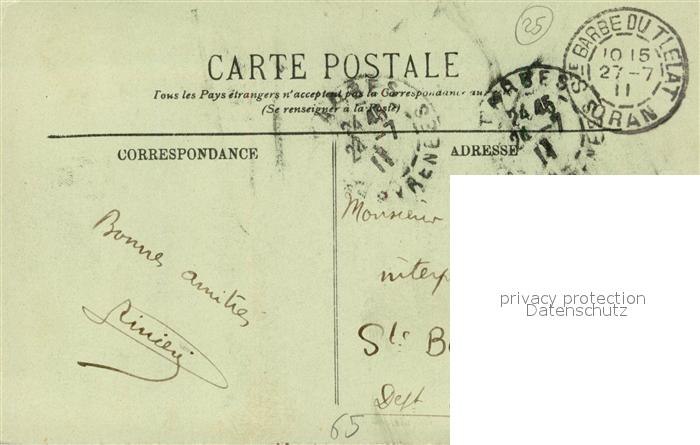 25
CARTE POSTALE
Tous les Pays étrangers n'acceptent pas la Correspondance au
(Se renseigner à la Poste)
TARBES
24 45
24 -7
11
PYRENEES
STE BARBE DU TLELAT
10 15
27 -7
11
ORAN
CORRESPONDANCE
ADRESSE
Bonnes amitiés
Monsieur
interp
Ste B
Dept
65
privacy protection
Datenschutz